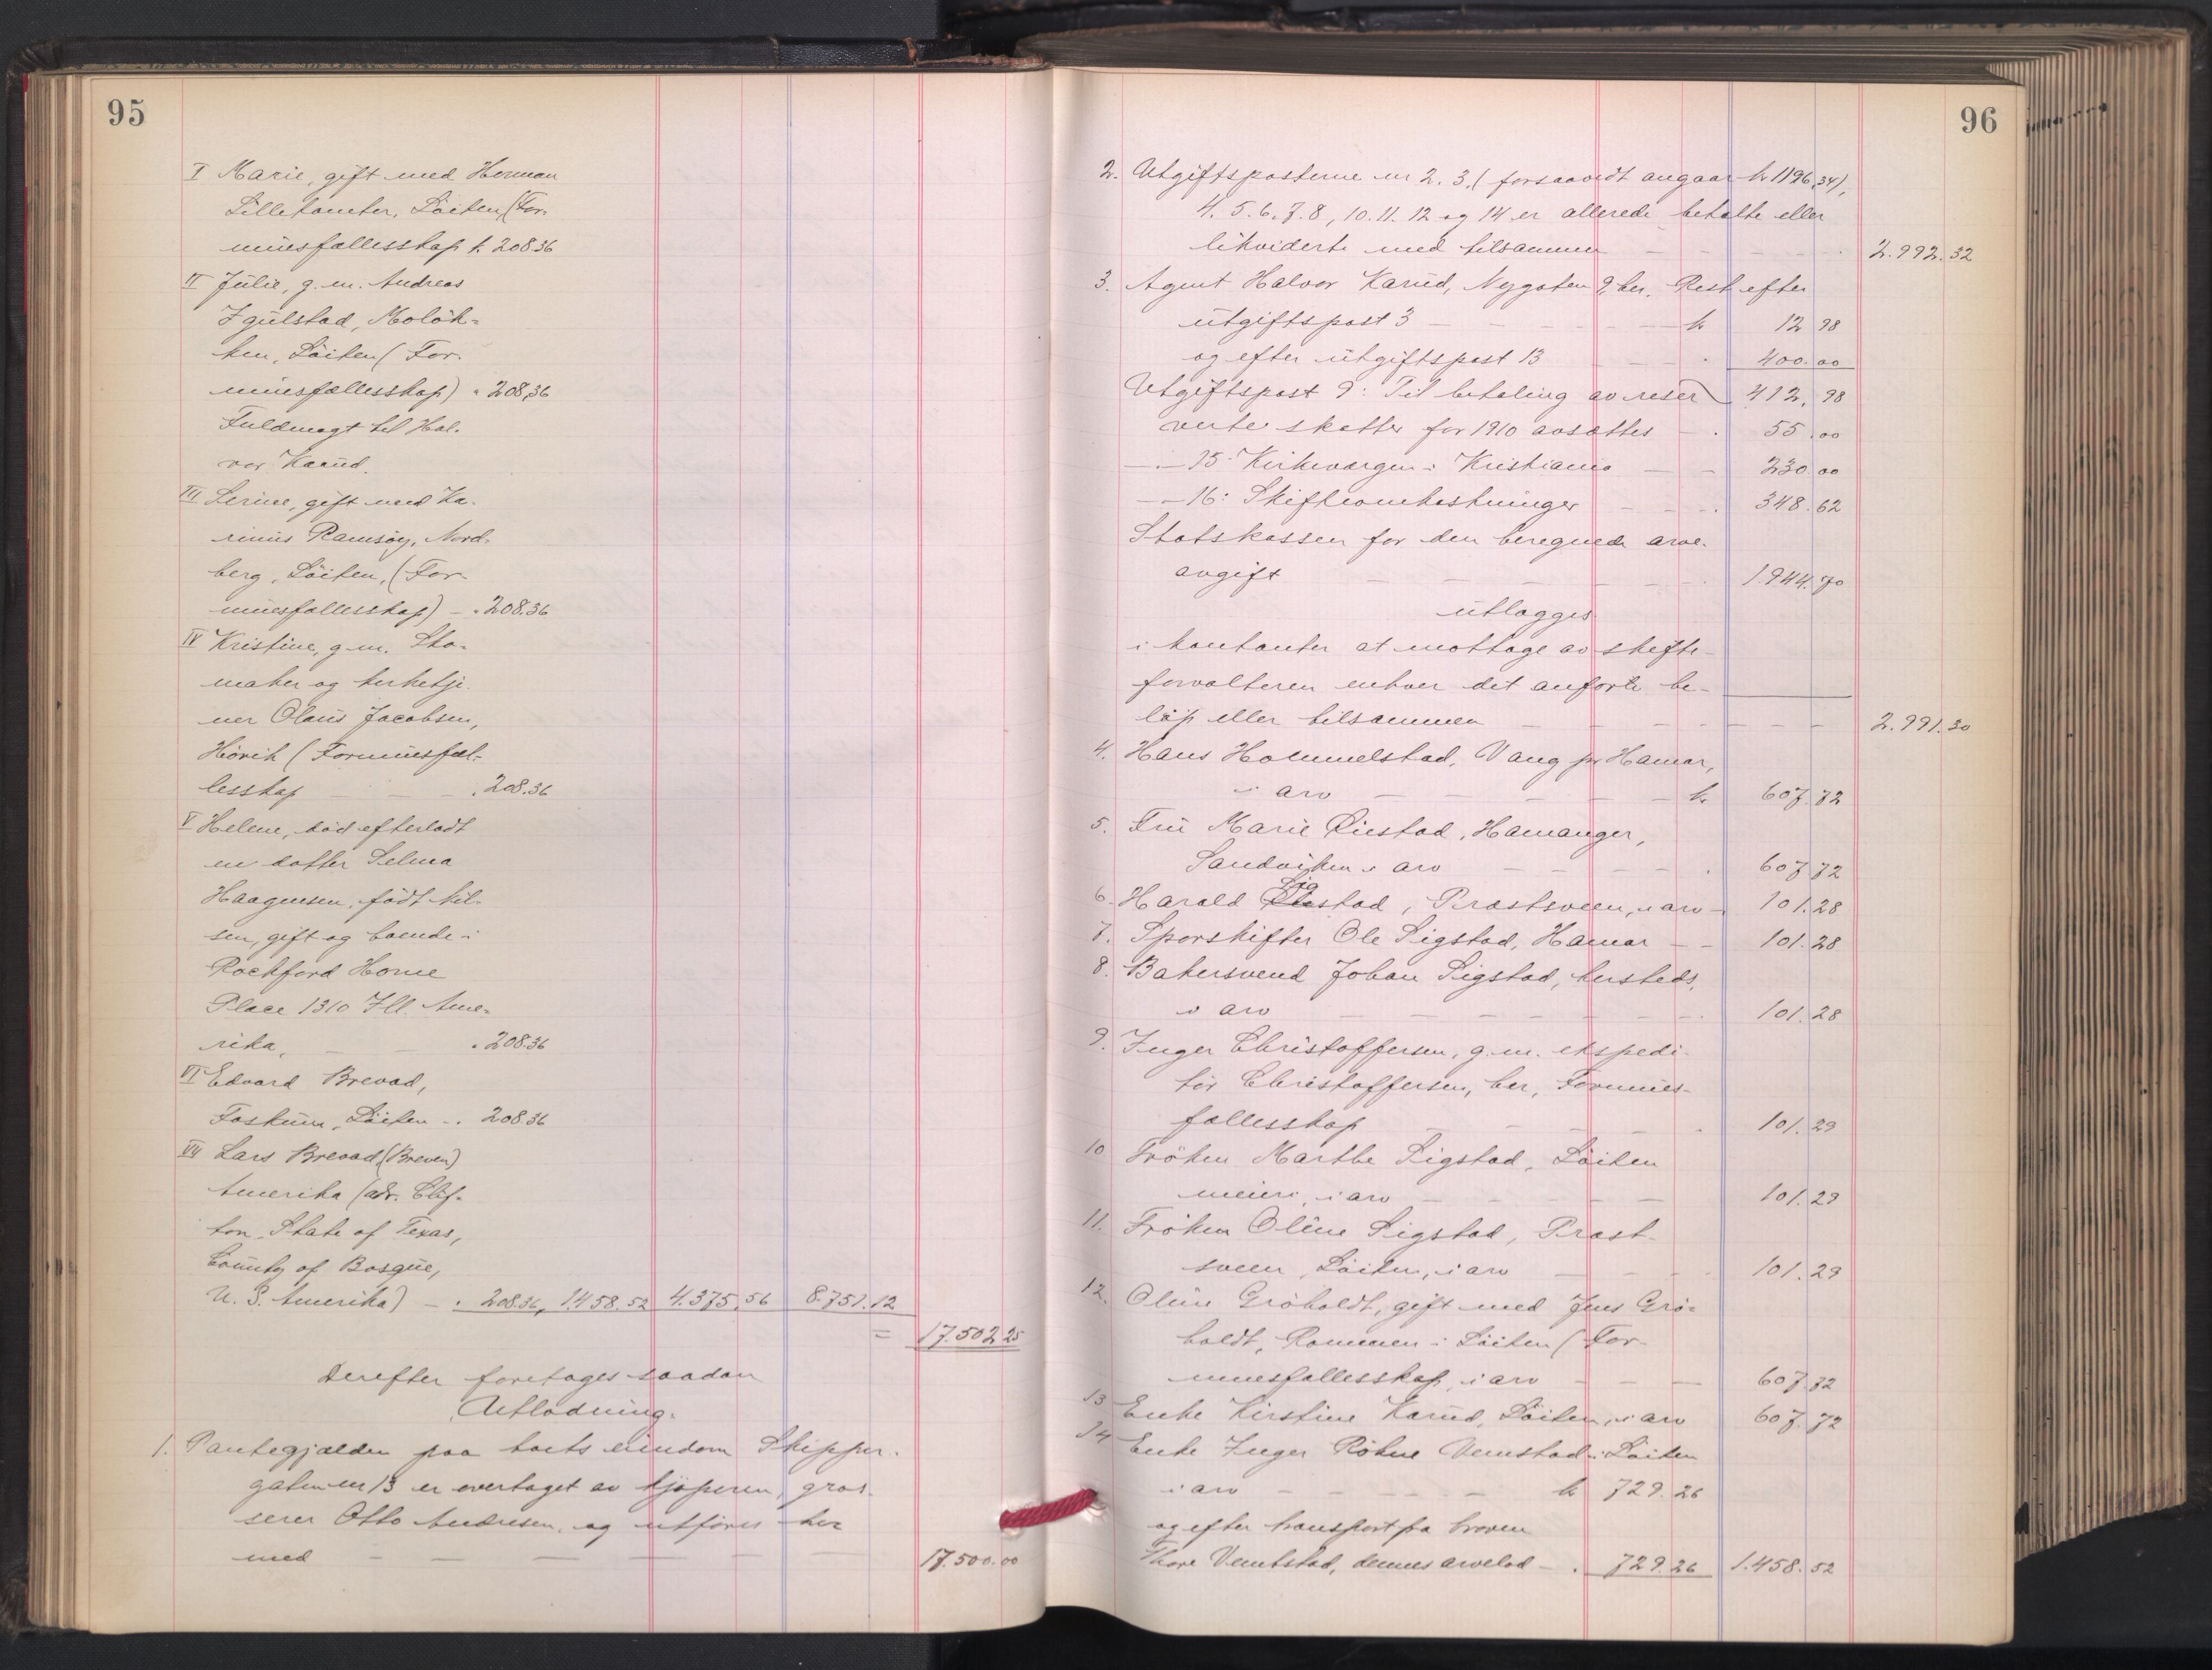 95
I Marie, gift med Herman
Lilletomter, Löiten, (For-
muesfællesskap k. 208 36
II Julie, g. m. Andreas
Igulstad, Molök-
ken, Löiten (For-
muesfællesskap) " 208,36
Fuldmagt til Hal-
vor Karud.
III Serine, gift med Ka-
rinius Ramsöy, Nord-
berg, Löiten, (For-
muesfællesskap) - " 208.36
IV Kristine, g. m. Sko-
maker og kirketje-
ner Olaus Jacobsen,
Hörvik (Formuesfæl-
lesskap - - - " 208.36
V Helene, död efterlodt
en datter Selma
Haagensen, födt Nil-
sen, gift og boende i
Rockford Horne
Place 1310 Ill. Ame-
rika, - - " 208.36
VI Edvard Brevad,
Foskum, Löiten - " 208.36
VII Lars Brevad, (Breven)
Amerika (adr. Clif-
ton, State of Texas,
County of Bosque,
U. S. Amerika) - " 208.36, 1458.52 4.375,56 8.751.12
= 17.502 25
Derefter foretages saadan
Utlodning.
1. Pantegjælden paa boets eiendom Skipper-
gaten nr 13 er overtaget av kjöperen, gros-
serer Otto Andresen, og utföres her
med - - - - - - 17.500.00
96
2. Utgiftsposterne nr 2. 3. (forsaavidt angaar k 1196,34),
4. 5. 6. 7. 8, 10. 11. 12 og 14 er allerede betalte eller
likviderte med tilsammen - - - - - 2.992.32
3. Agent Halvor Karud, Nygaten 9, her, Rest efter
utgiftspost 3 - - - - - k 12 98
og efter utgiftspost 13 - - - 400.00
Utgiftspost 9: Til betaling av reser 412,98
verte skatter for 1910 avsættes - . 55.00
-"-15: Kirkevergen i Kristiania - - 230.00
-"-16: Skifteomkostninger - - - 348.62
Statskassen for den beregnede arve-
avgift - - - - - - 1944.70
utlægges
i kontanter at mottage av skifte-
forvalteren enhver det anförte be-
löp eller tilsammen - - - - - - 2.991.30
4. Hans Hommelstad, Vang pr Hamar,
i arv - - - - - k 607.72
5. Fru Marie Riestad, Hamanger,
Sandviken i arv - - - - . 607 72
6. Harald Sigstad, Præstsveen, i arv - 101.28
7. Sporskifter Ole Sigstad, Hamar - - 101.28
8. Bakersvend Johan Sigstad, hersteds,
i arv - - - - - - 101.28
9. Inger Christoffersen, g. m. ekspedi-
tör Christoffersen, her, Formues-
fællesskap - - - - - 101.29
10 Fröken Marthe Sigstad, Löiten
meieri, i arv - - - - - 101.29
11. Fröken Oline Sigstad, Præst-
sveen, Löiten, i arv - - - 101.29
12. Oline Gröholdt, gift med Jens Grö-
holdt, Rommen i Löiten (For-
muesfællesskap, i arv - - - 607.72
13 Enke Kirstine Karud, Löiten, i arv 607.72
14 Enke Inger Röhne Vemstad i Löiten
i arv - - - - - k 729.26
og efter transport fra broren
Thore Vemstad, dennes arvelod - . 729.26 1.458.52